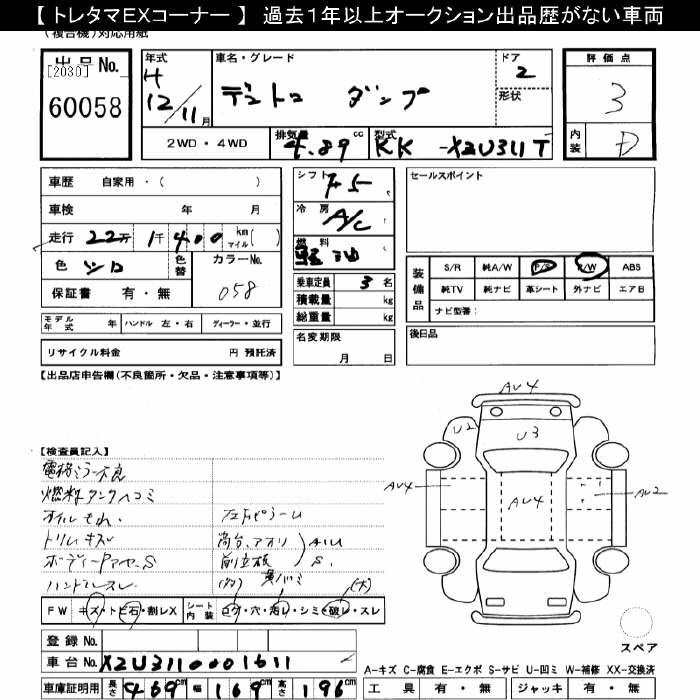 【 トレタマEXコーナー 】 過去1年以上オークション出品歴がない車両
(複合機)対応用紙
出品No.
[2030]
60058
年式
H
12/11月
車名・グレード
デュトロ ダンプ
ドア
2
形状
評価点
3
内装
D
2WD・4WD
排気量
4.89 cc
型式
KK-XZU311T
車歴 自家用・( )
車検 年 月
走行 22万1千400 km マイル( )
色 シロ
色替
カラーNo.
058
保証書 有・無
モデル年式 年 ハンドル 左・右 ディーラー・並行
リサイクル料金 円 預託済
シフト
F5
冷房
A/C
燃料
軽油
乗車定員 3名
積載量 kg
総重量 kg
名変期限
月 日
セールスポイント
装備品
S/R 純A/W P/S P/W ABS
純TV 純ナビ 革シート 外ナビ エアB
ナビ型番:
後日品
【出品店申告欄(不良箇所・欠品・注意事項等)】
【検査員記入】
電格ミラー不良
燃料タンクヘコミ
オイルもれ.
トリムキズ
ボディーアワセ.S
ハンドルスレ.
フロアピラーU
荷台、アオリ
前立板
AUU
S.
AU4
U2
U3
AU4
AU4
AU2
スペア
FW キズ・トビ石・割レX
シート内装 コゲ・穴・汚レ・シミ・破レ・スレ
(大)
登録No.
車台No. XZU3110001611
車庫証明用 長さ 469cm 幅 169cm 高さ 196cm
A-キズ C-腐食 E-エクボ S-サビ U-凹ミ W-補修 XX-交換済
工具 有・無 ジャッキ 有・無